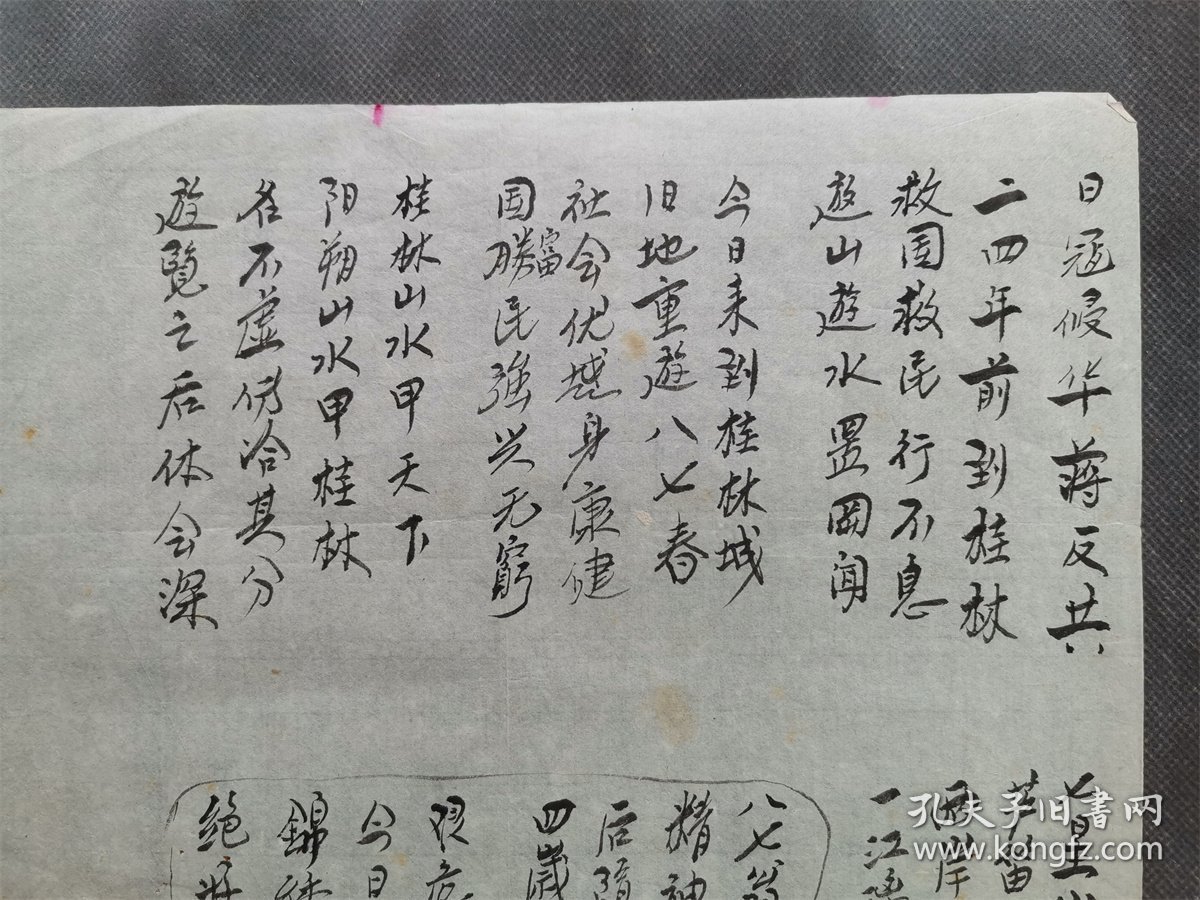 日冦侵华蒋反共
二四年前到桂林
救国救民行不息
遊山遊水罢闻
今日来到桂林城
旧地重遊八七春
社会优越身康健
国勝富民強兴无窮
桂林山水甲天下
阳朔山水甲桂林
名不虚傳冾其分
遊覽之后体会深
七星
芦笛
两岸
一江
八七翁
精神
后
四歲
今日
錦
絕
孔夫子旧书网
www.kongfz.com